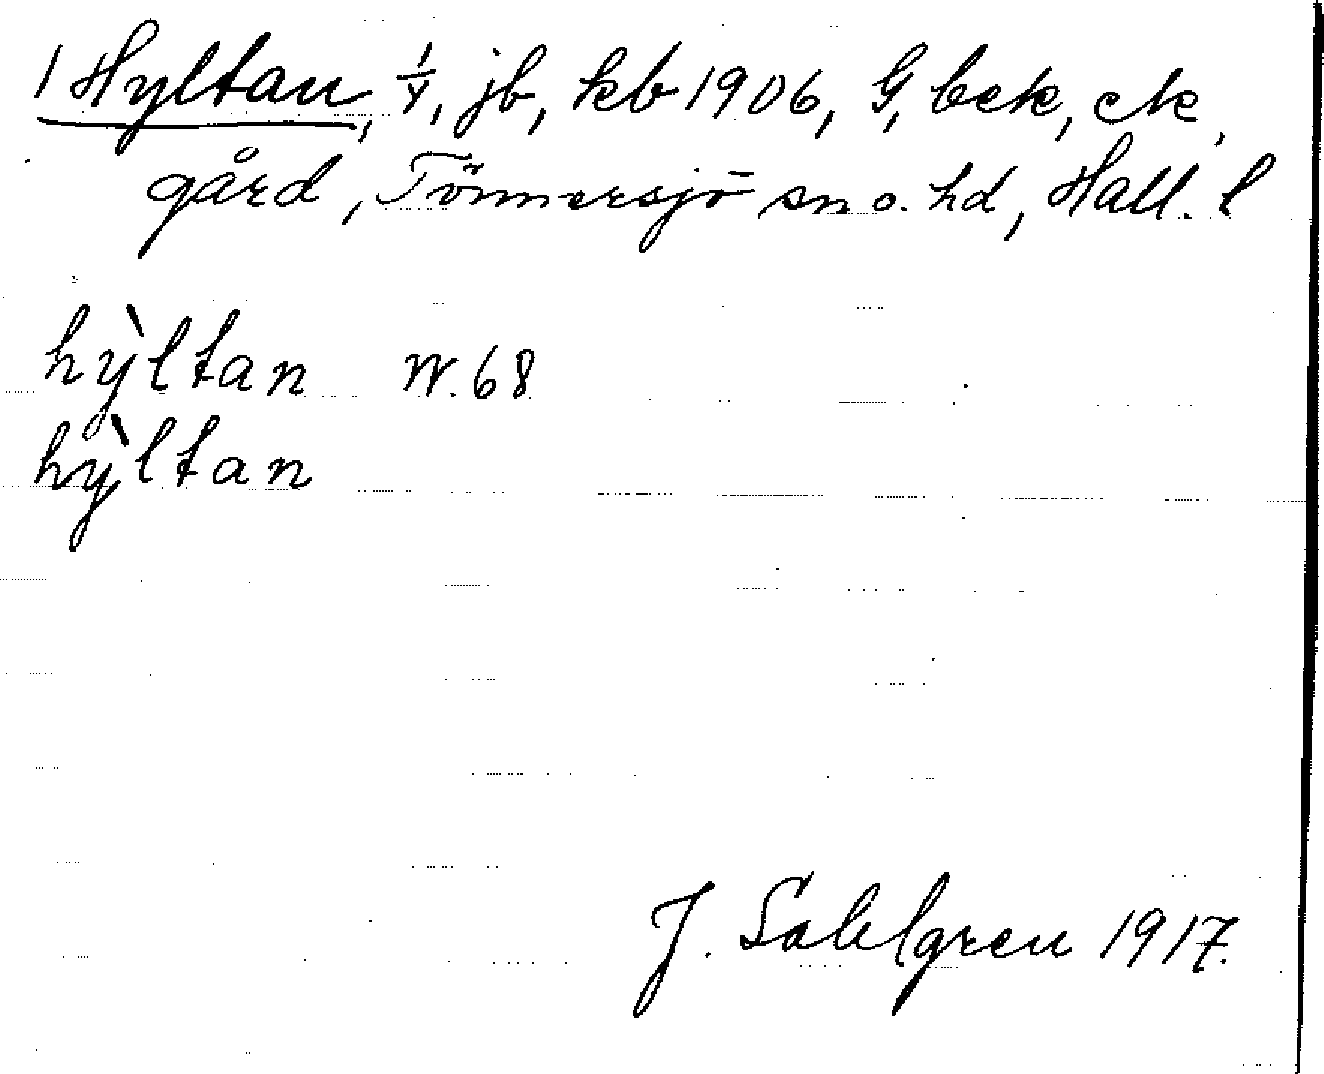 1 Hyltan, 1/4, jb, kb 1906, G, bek, ek,
gård, Tönnersjö sn o. hd, Hall. l
hỳltan W. 68
hỳltan
J. Sahlgren 1917.